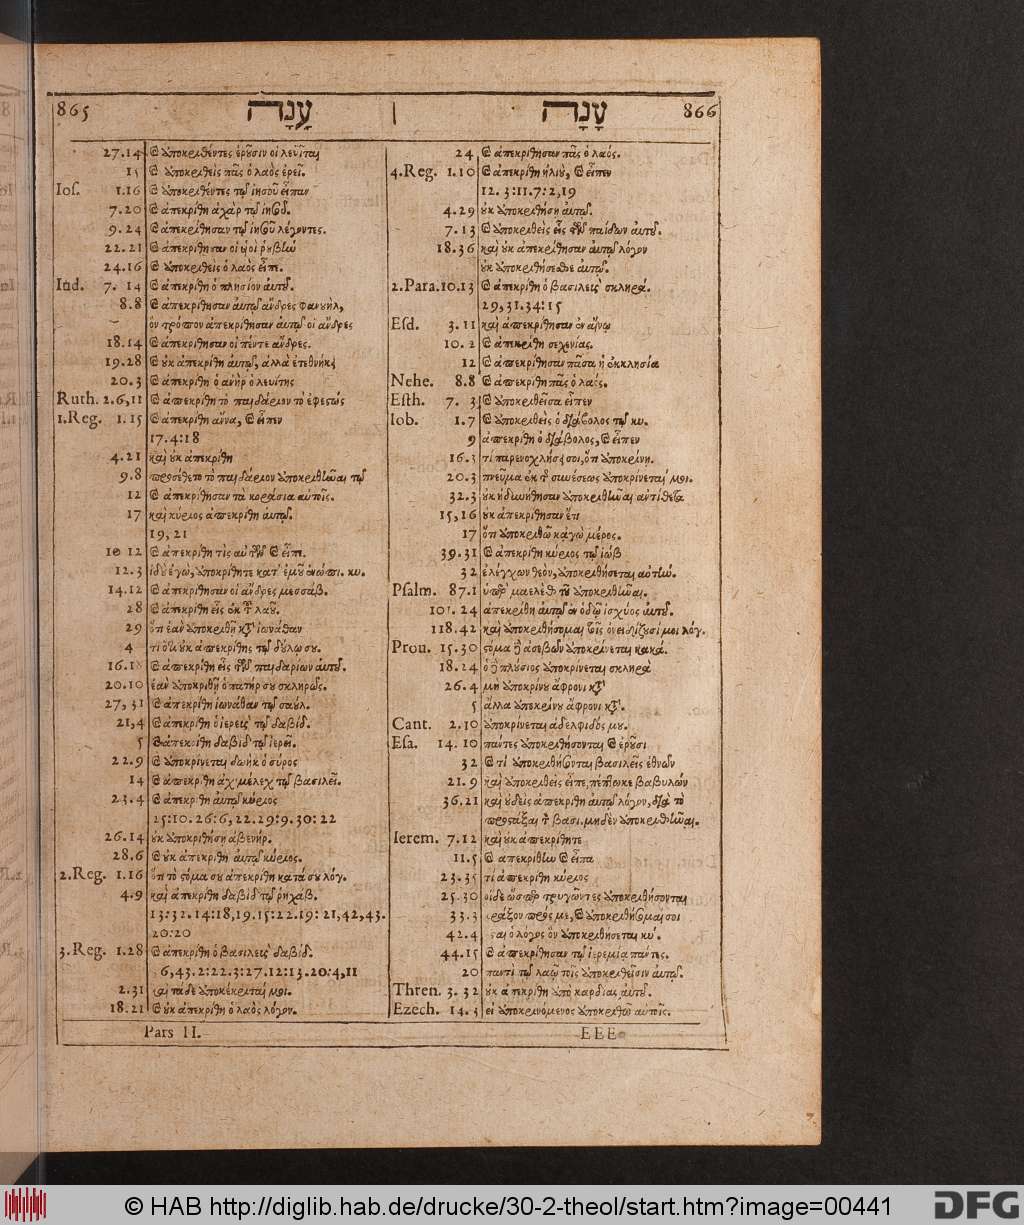 865 עָנָה | עָנָה 866
27.14 & ὑποκριθέντες ἐρῦσιν οἱ λευῖται
15 & ὑποκριθεὶς πᾶς ὁ λαὸς ἐρεῖ.
Ios. 1.16 & ὑποκριθέντες τῷ ἰησοῦ εἶπαν
7.20 & ἀπεκρίθη ἀχὰρ τῷ ἰησοῖ.
9.24 & ἀπεκρίθησαν τῷ ἰησοῦ λέγοντες.
22.21 & ἀπεκρίθησαν οἱ υἱοὶ ῥυβὶω
24.16 & ὑποκριθεὶς ὁ λαὸς εἶπε.
Iud. 7. 14 & ἀπεκρίθη ὁ πλησίον αὐτοῦ.
8.8 & ἀπεκρίθησαν αὐτῷ ἄνδρες φανυὴλ,
ὃν τρόπον ἀπεκρίθησαν αὐτῷ οἱ ἄνδρες
18.14 & ἀπεκρίθησαν οἱ πέντε ἄνδρες.
19.28 & οὐκ ἀπεκρίθη αὐτῷ, ἀλλὰ ἐτεθνήκει
20.3 & ἀπεκρίθη ὁ ἀνὴρ ὁ λευίτης
Ruth. 2.6,11 & ἀπεκρίθη τὸ παιδάριον τὸ ἐφεστώς
1.Reg. 1.15 & ἀπεκρίθη ἄννα, & εἶπεν
17.4:18
4.21 καὶ οὐκ ἀπεκρίθη
9.8 προσέθετο τὸ παιδάριον ὑποκριθῆναι τῷ
12 & ἀπεκρίθησαν τὰ κοράσια αὐτοῖς.
17 καὶ κύριος ἀπεκρίθη αὐτῷ.
19,21
10 12 & ἀπεκρίθη τὶς αὐτῶν & εἶπε.
12.3 ἰδοὺ ἐγὼ, ὑποκρίθητε κατ' ἐμοῦ ἐνώπι. κυ.
14.12 & ἀπεκρίθησαν οἱ ἄνδρες μεσσάβ.
28 & ἀπεκρίθη εἷς ἐκ τοῦ λαοῦ.
29 ὅτι ἐὰν ὑποκριθῇ κατὰ ἰωνάθαν
4 τί ὅτι οὐκ ἀπεκρίθης τῷ δούλῳ σου.
16.18 & ἀπεκρίθη εἷς τῶν παιδαρίων αὐτοῦ.
20.10 ἐὰν ὑποκριθῇ ὁ πατήρ σου σκληρῶς.
27, 31 & ἀπεκρίθη ἰωνάθαν τῷ σαούλ.
21,4 & ἀπεκρίθη ὁ ἱερεὺς τῷ δαβίδ.
5 & ἀπεκρίθη δαβὶδ τῷ ἱερεῖ.
22.9 & ὑποκρίνεται δωὴκ ὁ σύρος
14 & ἀπεκρίθη ἀχιμέλεχ τῷ βασιλεῖ.
23.4 & ἀπεκρίθη αὐτῷ κύριος
25:10.26:6,22.29:9.30:22
26.14 οὐκ ὑποκριθήσῃ ἀβενήρ.
28.6 & οὐκ ἀπεκρίθη αὐτῷ κύριος.
2.Reg. 1.16 ὅτι τὸ στόμα σου ἀπεκρίθη κατὰ σοῦ λέγ.
4.9 καὶ ἀπεκρίθη δαβὶδ τῷ ῥηχάβ.
13:32.14:18,19.15:22.19: 21,42,43.
20:20
3.Reg. 1.28 & ἀπεκρίθη ὁ βασιλεὺς δαβίδ.
6,43.2:22.3:27.12:13.20:4,11
2.31 καὶ τάδε ὑποκέκριταί μοι.
18.21 & οὐκ ἀπεκρίθη ὁ λαὸς λόγον.
Pars II.
24 & ἀπεκρίθησαν πᾶς ὁ λαός.
4.Reg. 1.10 & ἀπεκρίθη ἠλιοὺ, & εἶπεν
12. 3:11.7:2,19
4.29 οὐκ ὑποκριθήσῃ αὐτῷ.
7.13 & ὑποκριθεὶς εἷς τῶν παίδων αὐτοῦ.
18.36 καὶ οὐκ ἀπεκρίθησαν αὐτῷ λόγον
οὐκ ὑποκριθήσεσθε αὐτῷ.
2.Para.10.13 & ἀπεκρίθη ὁ βασιλεὺς σκληρά.
29,31.34:15
Esd. 3.11 καὶ ἀπεκρίθησαν ἐν αἴνῳ
10. 2 & ἀπεκρίθη σεχενίας.
12 & ἀπεκρίθησαν πᾶσα ἡ ἐκκλησία
Nehe. 8.8 & ἀπεκρίθη πᾶς ὁ λαός.
Esth. 7. 3 & ὑποκριθεῖσα εἶπεν
Iob. 1.7 & ὑποκριθεὶς ὁ διάβολος τῷ κυ.
9 ἀπεκρίθη ὁ διάβολος, & εἶπεν
16.3 τί παρενοχλήσει σοι, ὅτι ὑποκρίνῃ.
20.3 πνεῦμα ἐκ τῆς συνέσεως ὑποκρίνεταί μοι.
32.3 οὐκ ἠδυνήθησαν ὑποκριθῆναι ἀντίθετα
15,16 οὐκ ἀπεκρίθησαν ἔτι
17 ὅτι ὑποκριθῶ κἀγὼ μέρος.
39.31 & ἀπεκρίθη κύριος τῷ ἰὼβ
32 ἐλέγχων θεὸν, ὑποκριθήσεται αὐτήν.
Psalm. 87.1 ὑπὲρ μαελὲθ τοῦ ὑποκριθῆναι.
101. 24 ἀπεκρίθη αὐτῷ ἐν ὁδῷ ἰσχύος αὐτοῦ.
118.42 καὶ ὑποκριθήσομαι τοῖς ὀνειδίζουσί μοι λόγ.
Prou. 15.30 στόμα δὲ ἀσεβῶν ὑποκρίνεται κακά.
18.24 ὁ δὲ πλούσιος ὑποκρίνεται σκληρὰ
26.4 μὴ ὑποκρίνου ἄφρονι κατὰ
5 ἀλλὰ ὑποκρίνου ἄφρονι κατὰ.
Cant. 2.10 ὑποκρίνεται ἀδελφιδός μου.
Esa. 14. 10 πάντες ὑποκριθήσονται & ἐροῦσι
32 & τί ὑποκριθήσονται βασιλεῖς ἐθνῶν
21.9 καὶ ὑποκριθεὶς εἶπε, πέπτωκε βαβυλὼν
36.21 καὶ οὐδεὶς ἀπεκρίθη αὐτῷ λόγον, διὰ τὸ
προστάξαι τὸν βασι. μηδὲν ὑποκριθῆναι.
Ierem. 7.12 καὶ οὐκ ἀπεκρίθητε
11.5 & ἀπεκρίθην & εἶπα
23.35 τί ἀπεκρίθη κύριος
25.30 οἵδε ὥσπερ τρυγῶντες ὑποκριθήσονται
33.3 κράξον πρός με, & ὑποκριθήσομαί σοι
42.4 ὁ λόγος ὃν ὑποκριθήσεται κυ.
44.15 & ἀπεκρίθησαν τῷ ἱερεμίᾳ πάντες.
20 παντὶ τῷ λαῷ τοῖς ὑποκριθεῖσιν αὐτῷ.
Thren. 3. 32 οὐκ ἀπεκρίθη ὑπὸ καρδίας αὐτοῦ.
Ezech. 14.3 εἰ ὑποκρινόμενος ὑποκριθῶ αὐτοῖς.
EEE
© HAB http://diglib.hab.de/drucke/30-2-theol/start.htm?image=00441
DFG